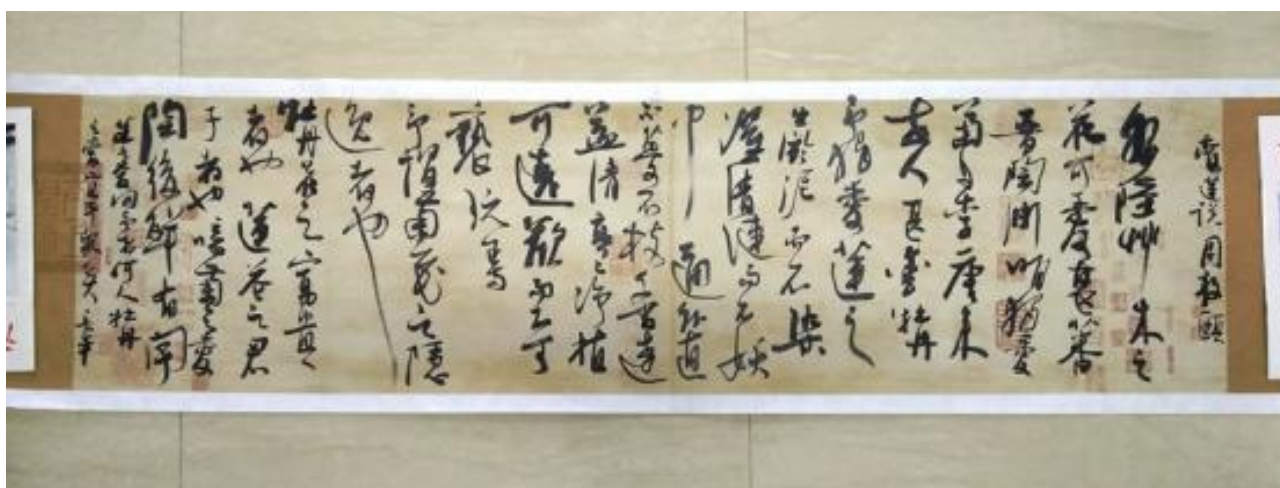 爱莲说 周敦颐
水陆草木之
花可爱者甚蕃
晋陶渊明独爱
菊自李唐来
世人甚爱牡丹
予独爱莲之
出淤泥而不染
濯清涟而不妖
中通外直
不蔓不枝香远
益清亭亭净植
可远观而不可
亵玩焉
予谓菊花之隐
逸者也
牡丹花之富贵
者也莲花之君
子者也噫菊之爱
陶后鲜有闻
莲之爱同予者何人牡丹
之爱宜乎众矣